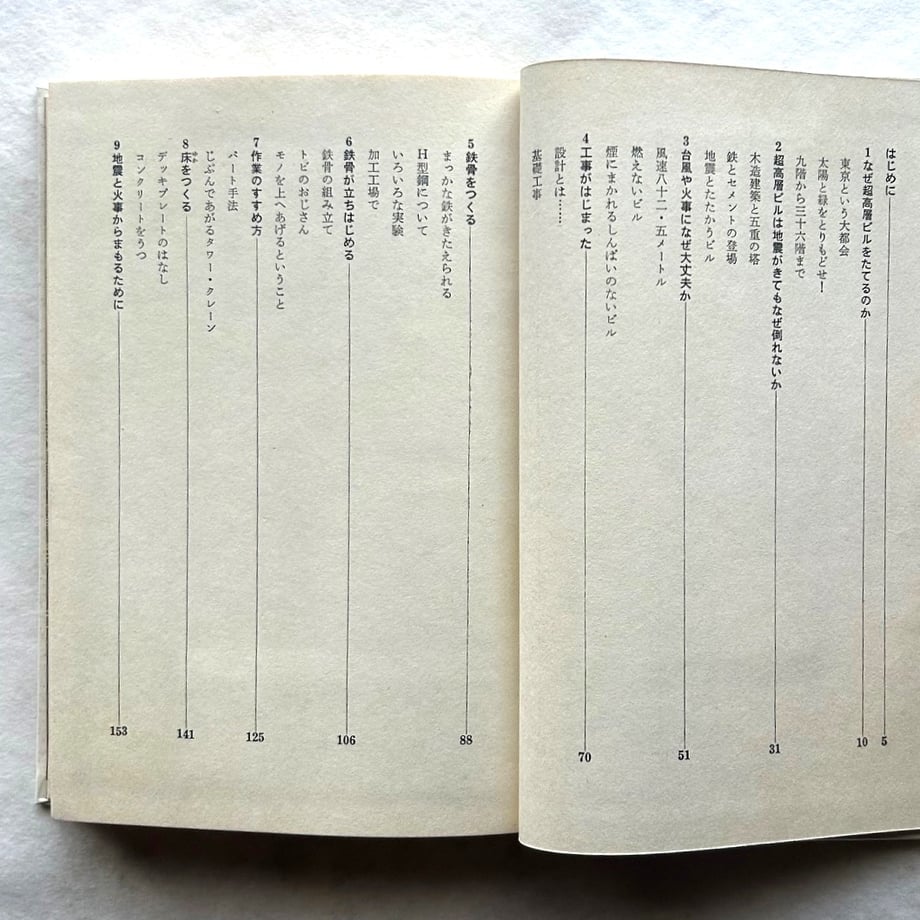 はじめに 5
1 なぜ超高層ビルをたてるのか 10
東京という大都会
太陽と緑をとりもどせ！
九階から三十六階まで
2 超高層ビルは地震がきてもなぜ倒れないか 31
木造建築と五重の塔
鉄とセメントの登場
地震とたたかうビル
3 台風や火事になぜ大丈夫か 51
風速八十二・五メートル
燃えないビル
煙にまかれるしんぱいのないビル
4 工事がはじまった 70
設計とは……
基礎工事
5 鉄骨をつくる 88
まっかな鉄がきたえられる
H型鋼について
いろいろな実験
加工工場で
6 鉄骨が立ちはじめる 106
鉄骨の組み立て
トビのおじさん
モノを上へあげるということ
7 作業のすすめ方 125
パート手法
じぶんであがるタワー・クレーン
8 床をつくる 141
デッキプレートのはなし
コンクリートをうつ
9 地震と火事からまもるために 153